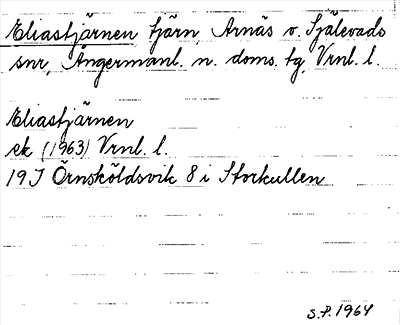 Eliastjärnen, tjärn, Arnäs o. Själevads
snr, Ångermanl. n. doms. tg, Vrnl. l.
Eliastjärnen
ek (1963) Vrnl. l.
19J Örnsköldsvik 8 i Storkullen
S.P. 1964